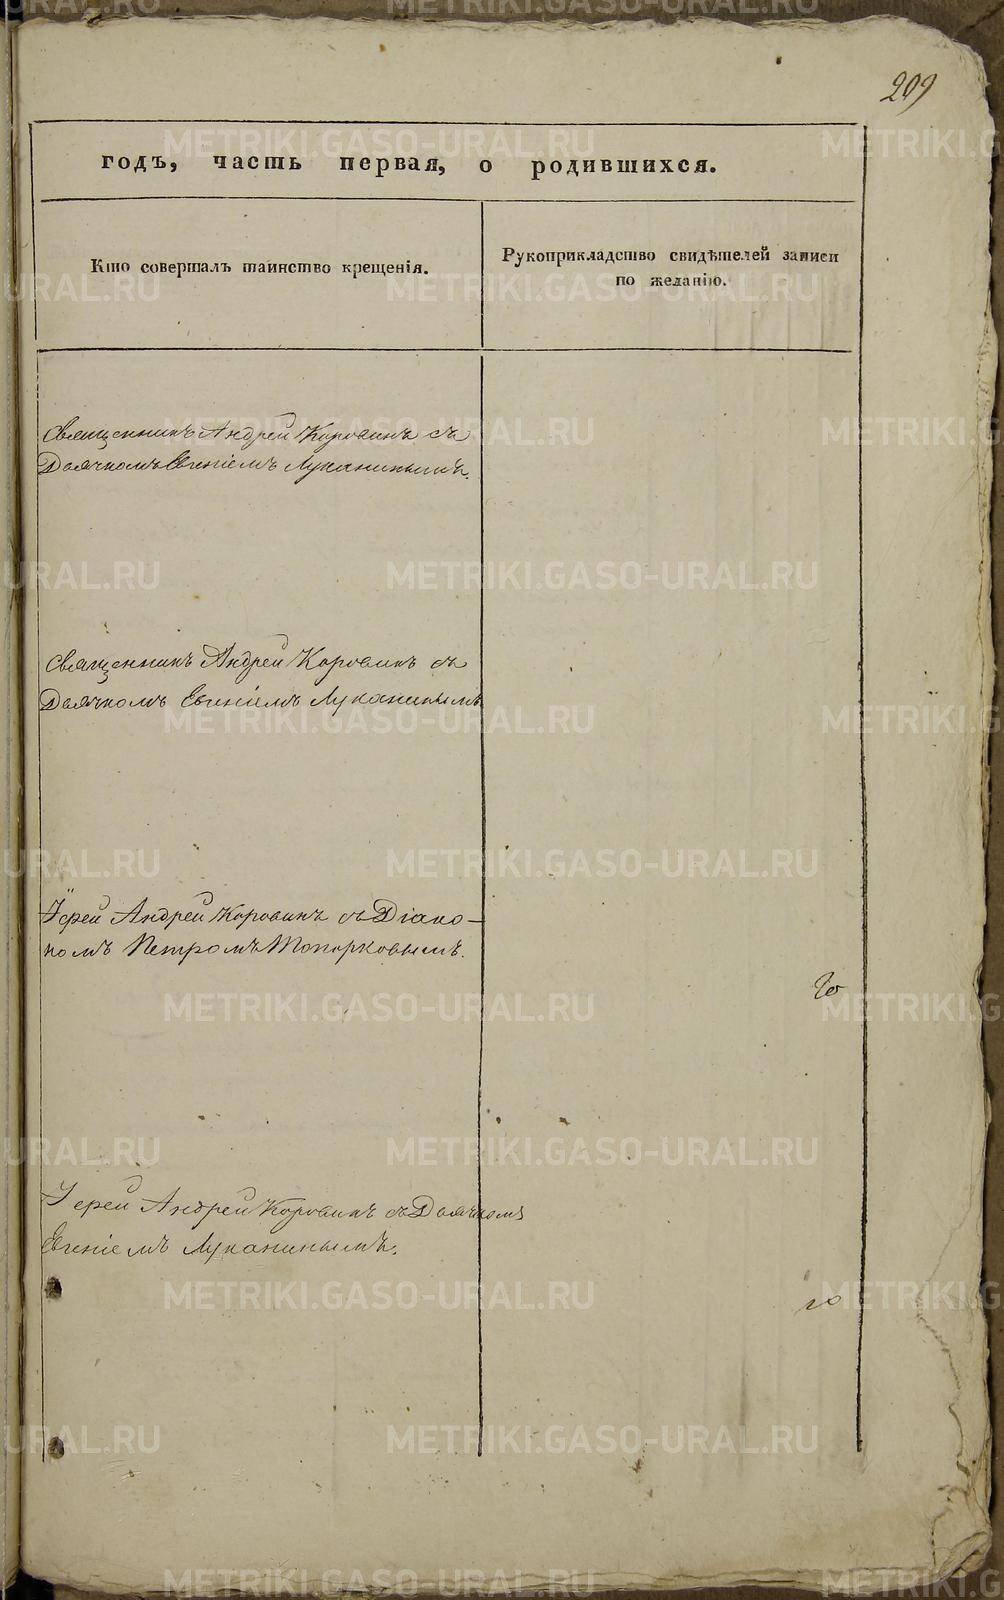 209
годъ, часть первая, о родившихся.
Кто совершалъ таинство крещенія.
Рукоприкладство свидѣтелей записи
по желанію.
Священникъ Андрей Коровинъ съ
Дьячкомъ Евгеніемъ Луканинымъ.
Священникъ Андрей Коровинъ съ
Дьячкомъ Евгеніемъ Луканинымъ
Іерей Андрей Коровинъ съ Діако-
номъ Петромъ Топорковымъ.
Іерей Андрей Коровинъ съ Дьячкомъ
Евгеніемъ Луканинымъ.
METRIKI.GASO-URAL.RU